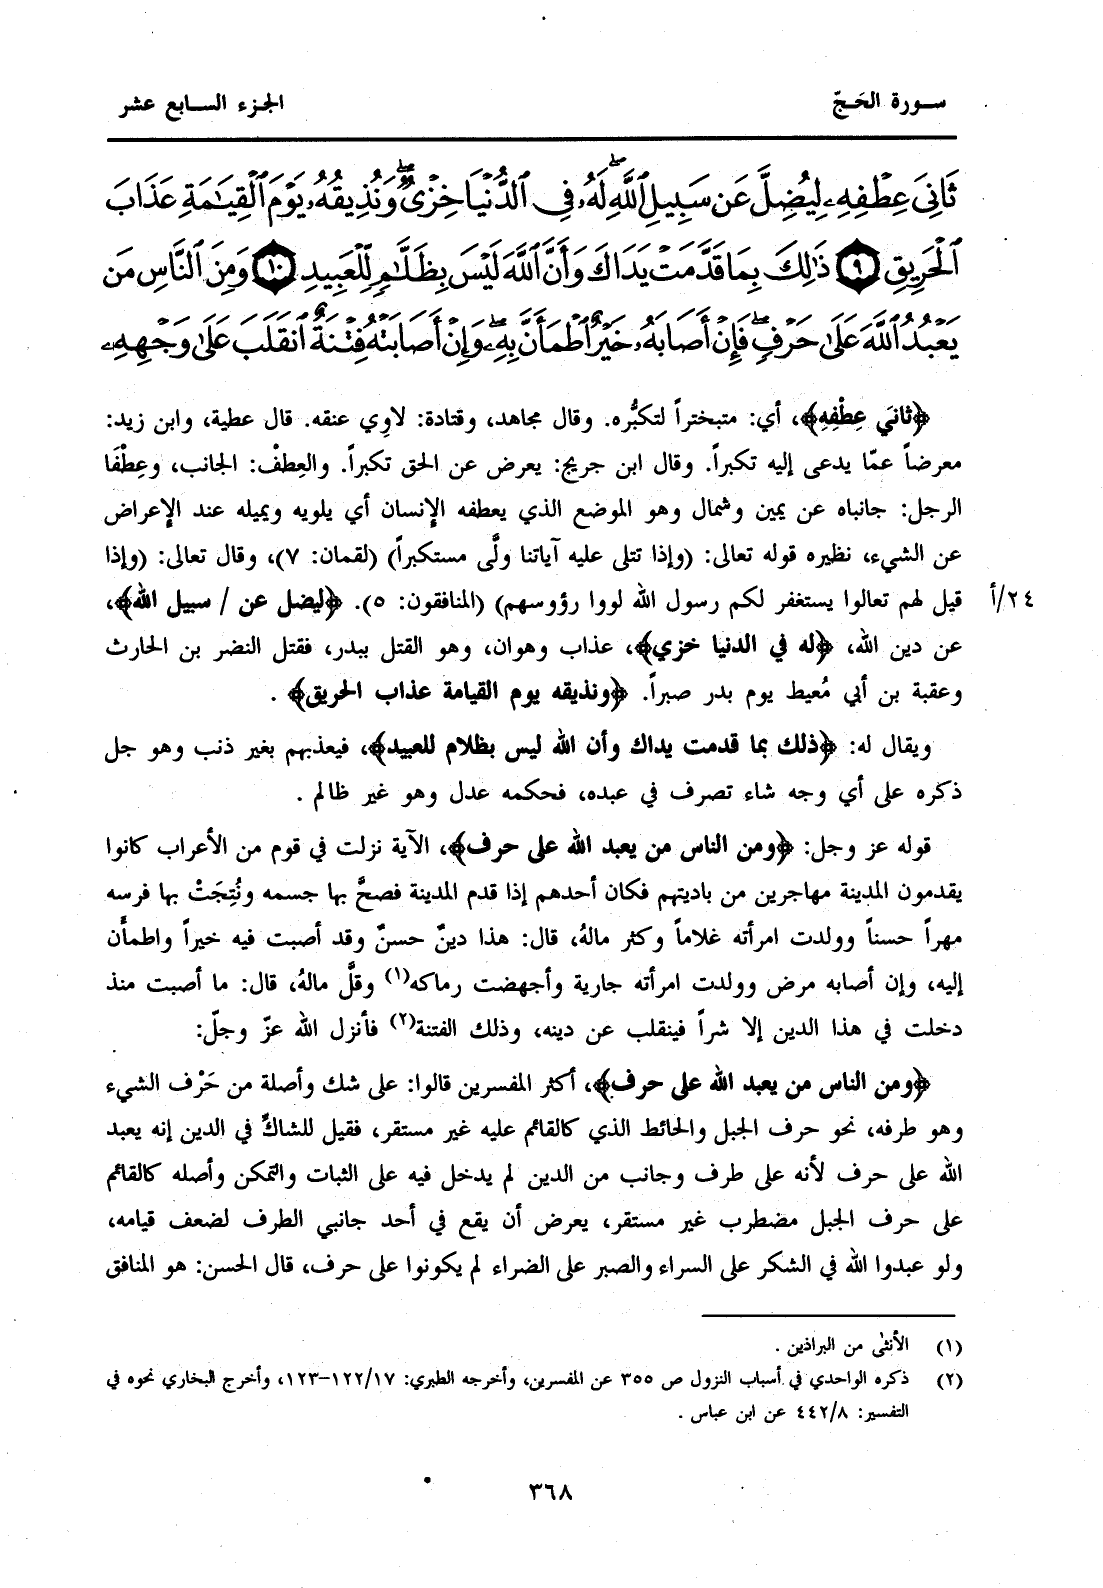 سورة الحَجّ
الجزء السابع عشر
ثَانِيَ عِطْفِهِۦ لِيُضِلَّ عَن سَبِيلِ ٱللَّهِۖ لَهُۥ فِى ٱلدُّنْيَا خِزْىٌۖ وَنُذِيقُهُۥ يَوْمَ ٱلْقِيَٰمَةِ عَذَابَ
ٱلْحَرِيقِ ٩ ذَٰلِكَ بِمَا قَدَّمَتْ يَدَاكَ وَأَنَّ ٱللَّهَ لَيْسَ بِظَلَّٰمٍ لِّلْعَبِيدِ ١٠ وَمِنَ ٱلنَّاسِ مَن
يَعْبُدُ ٱللَّهَ عَلَىٰ حَرْفٍۖ فَإِنْ أَصَابَهُۥ خَيْرٌ ٱطْمَأَنَّ بِهِۦۖ وَإِنْ أَصَابَتْهُ فِتْنَةٌ ٱنقَلَبَ عَلَىٰ وَجْهِهِۦ
﴿ثانيَ عِطْفِهِ﴾، أي: متبختراً لتكبُّره. وقال مجاهد، وقتادة: لاوِي عنقه. قال عطية، وابن زيد:
معرضاً عمّا يدعى إليه تكبراً. وقال ابن جريج: يعرض عن الحق تكبراً. والعِطفْ: الجانب، وعِطْفَا
الرجل: جانباه عن يمين وشمال وهو الموضع الذي يعطفه الإنسان أي يلويه ويميله عند الإعراض
عن الشيء، نظيره قوله تعالى: (وإذا تتلى عليه آياتنا ولَّى مستكبراً) (لقمان: ٧)، وقال تعالى: (وإذا
قيل لهم تعالوا يستغفر لكم رسول الله لووا رؤوسهم) (المنافقون: ٥). ﴿ليضل عن / سبيل الله﴾،
٢٤/أ
عن دين الله، ﴿له في الدنيا خزي﴾، عذاب وهوان، وهو القتل ببدر، فقتل النضر بن الحارث
وعقبة بن أبي مُعيط يوم بدر صبراً. ﴿ونذيقه يوم القيامة عذاب الحريق﴾ .
ويقال له: ﴿ذلك بما قدمت يداك وأن الله ليس بظلام للعبيد﴾، فيعذبهم بغير ذنب وهو جل
ذكره على أي وجه شاء تصرف في عبده، فحكمه عدل وهو غير ظالم .
قوله عز وجل: ﴿ومن الناس من يعبد الله على حرف﴾، الآية نزلت في قوم من الأعراب كانوا
يقدمون المدينة مهاجرين من باديتهم فكان أحدهم إذا قدم المدينة فصحَّ بها جسمه ونُتِجَتْ بها فرسه
مهراً حسناً وولدت امرأته غلاماً وكثر مالهُ، قال: هذا دينٌ حسنٌ وقد أصبت فيه خيراً واطمأَن
إليه، وإن أصابه مرض وولدت امرأته جارية وأجهضت رماكه(١) وقلَّ مالهُ، قال: ما أصبت منذ
دخلت في هذا الدين إلا شراً فينقلب عن دينه، وذلك الفتنة(٢) فأنزل الله عزّ وجلّ:
﴿ومن الناس من يعبد الله على حرف﴾، أكثر المفسرين قالوا: على شك وأصلة من حَرْف الشيء
وهو طرفه، نحو حرف الجبل والحائط الذي كالقائم عليه غير مستقر، فقيل للشاكّ في الدين إنه يعبد
الله على حرف لأنه على طرف وجانب من الدين لم يدخل فيه على الثبات والتمكن وأصله كالقائم
على حرف الجبل مضطرب غير مستقر، يعرض أن يقع في أحد جانبي الطرف لضعف قيامه،
ولو عبدوا الله في الشكر على السراء والصبر على الضراء لم يكونوا على حرف، قال الحسن: هو المنافق
(١) الأنثى من البراذين .
(٢) ذكره الواحدي في أسباب النزول ص ٣٥٥ عن المفسرين، وأخرجه الطبري: ١٢٢/١٧–١٢٣، وأخرج البخاري نحوه في
التفسير: ٤٤٢/٨ عن ابن عباس .
٣٦٨